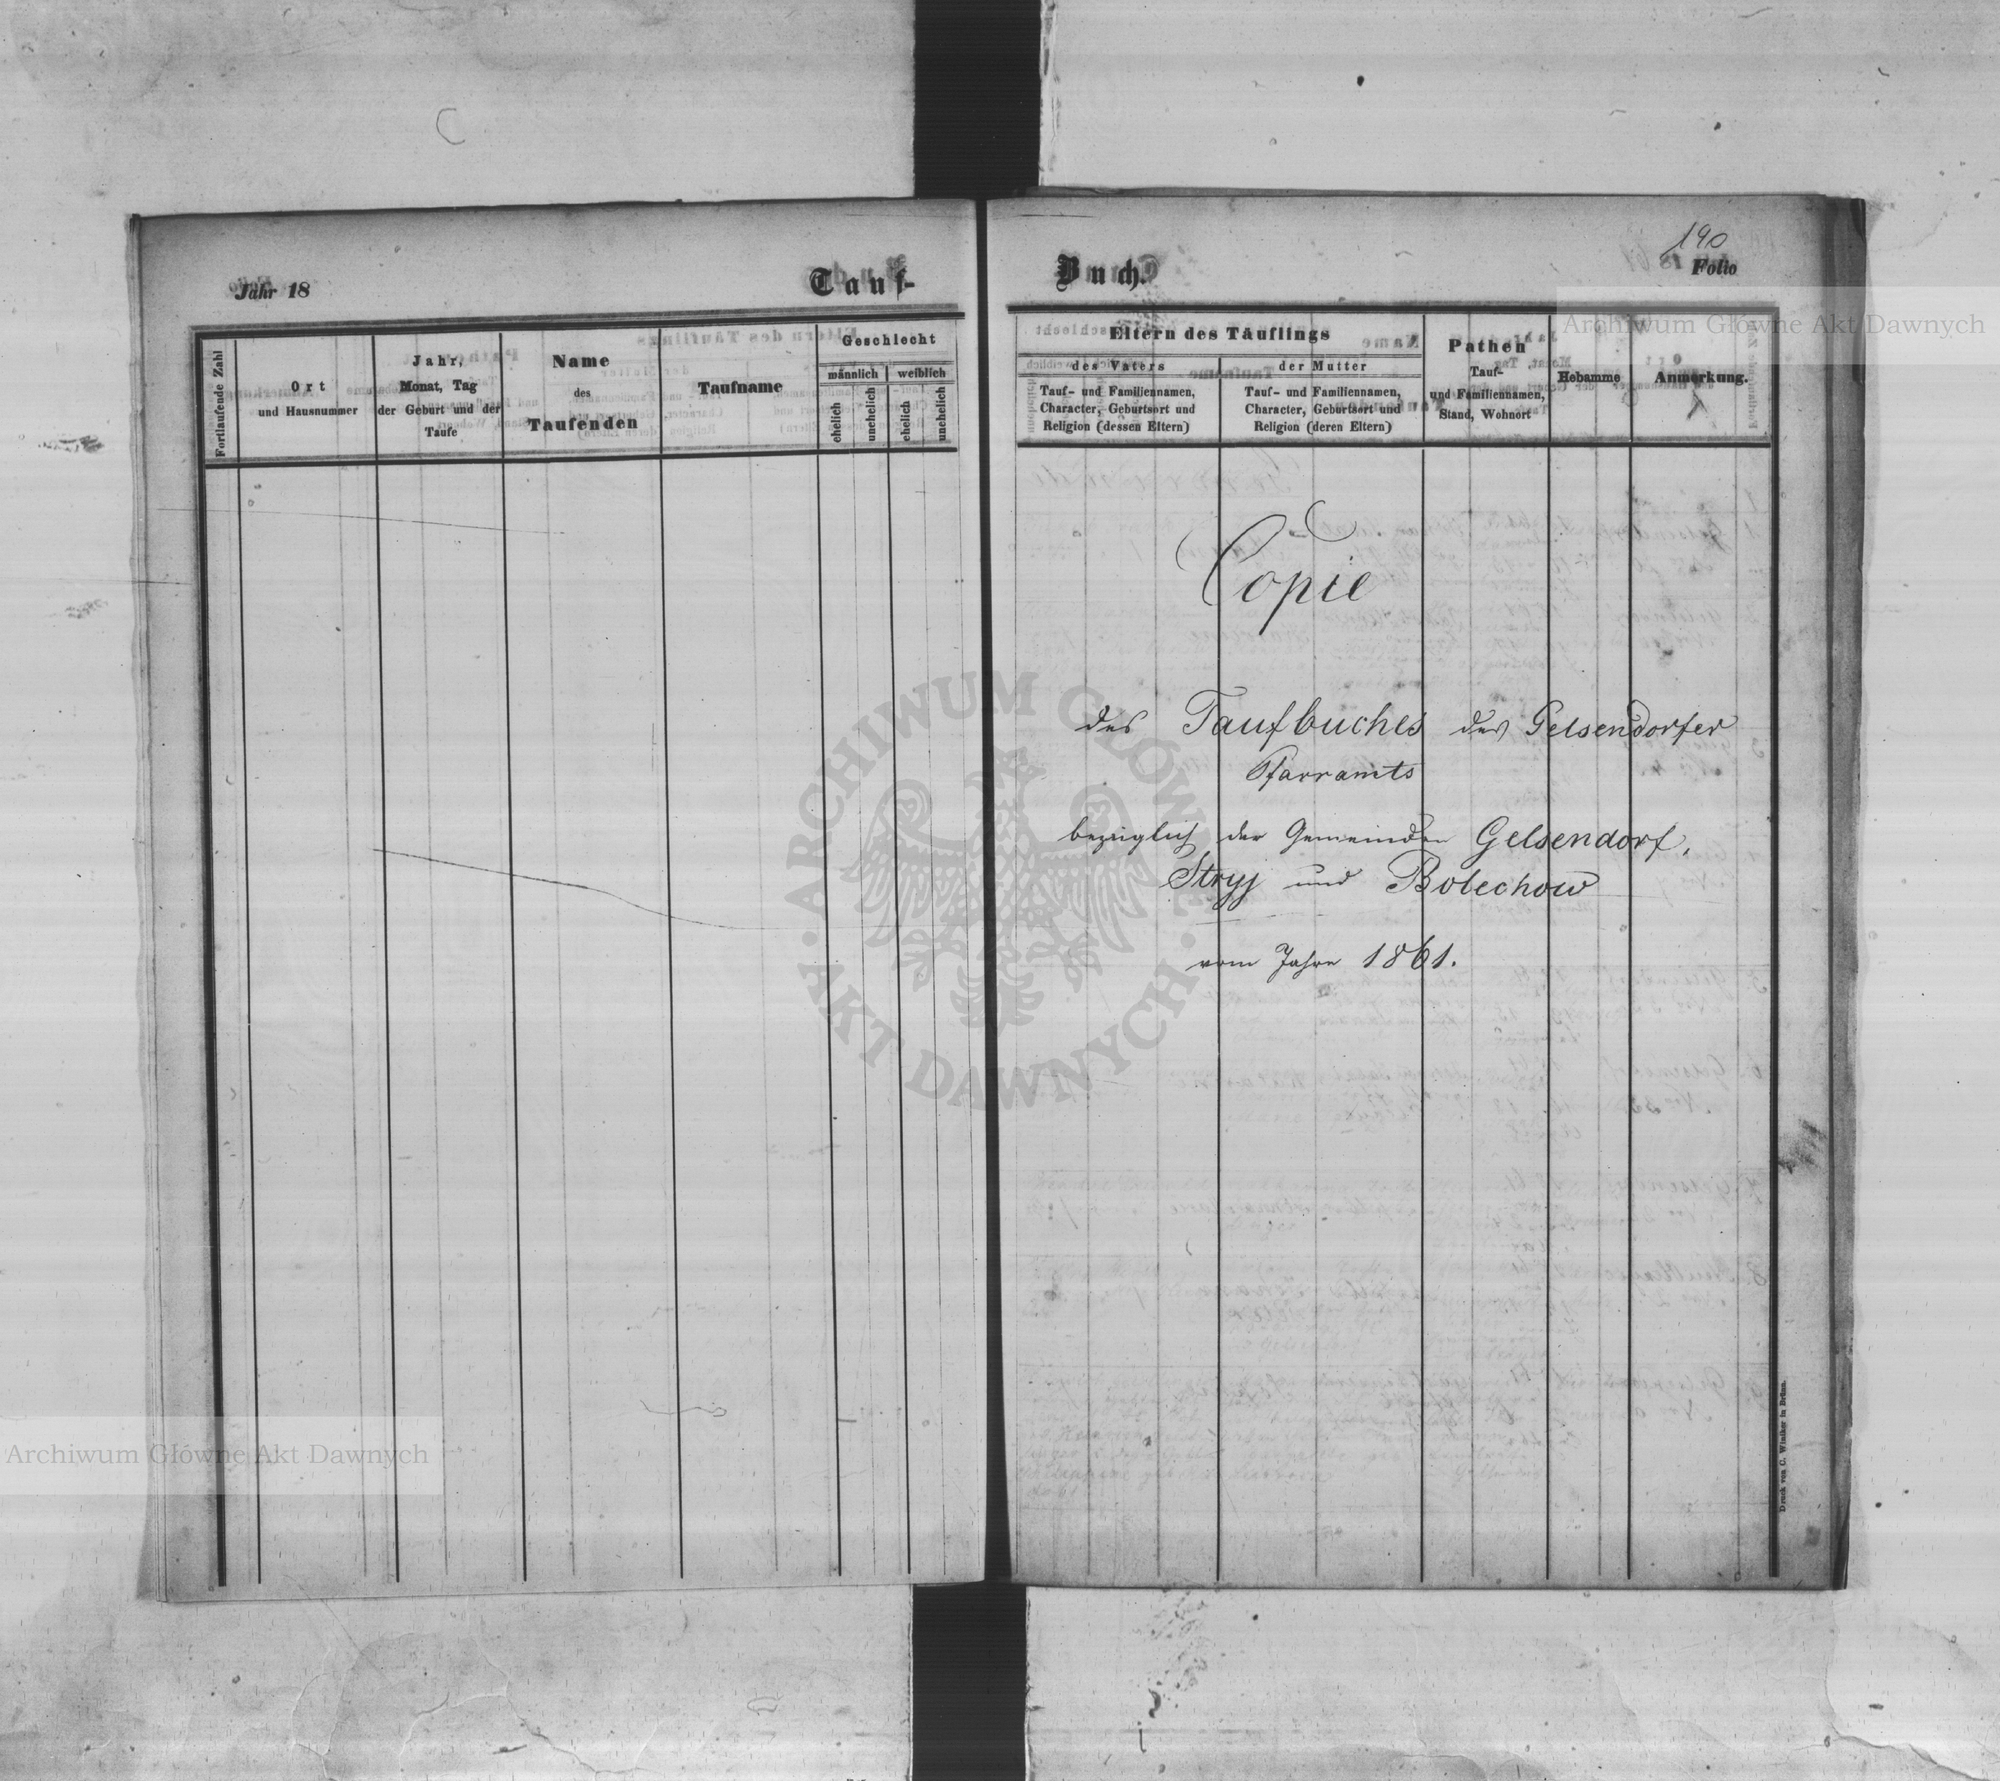 Jahr 18
Tauf-
Fortlaufende Zahl
Ort
und Hausnummer
Jahr,
Monat, Tag
der Geburt und der
Taufe
Name
des
Taufenden
Taufname
Geschlecht
männlich
weiblich
ehelich
unehelich
ehelich
unehelich
190
Buch.
Folio
Eltern des Täuflings
des Vaters
Tauf- und Familiennamen,
Character, Geburtsort und
Religion (dessen Eltern)
der Mutter
Tauf- und Familiennamen,
Character, Geburtsort und
Religion (deren Eltern)
Pathen
Tauf-
und Familiennamen,
Stand, Wohnort
Hebamme
Anmerkung.
Copie
des Taufbuches des Gelsendorfer
Pfarramts
bezüglich der Gemeinden Gelsendorf,
Stryj und Bolechow
vom Jahre 1861.
Druck von C. Winiker in Brünn.
Archiwum Główne Akt Dawnych
ARCHIWUM GŁÓWNE
AKT DAWNYCH
Archiwum Główne Akt Dawnych